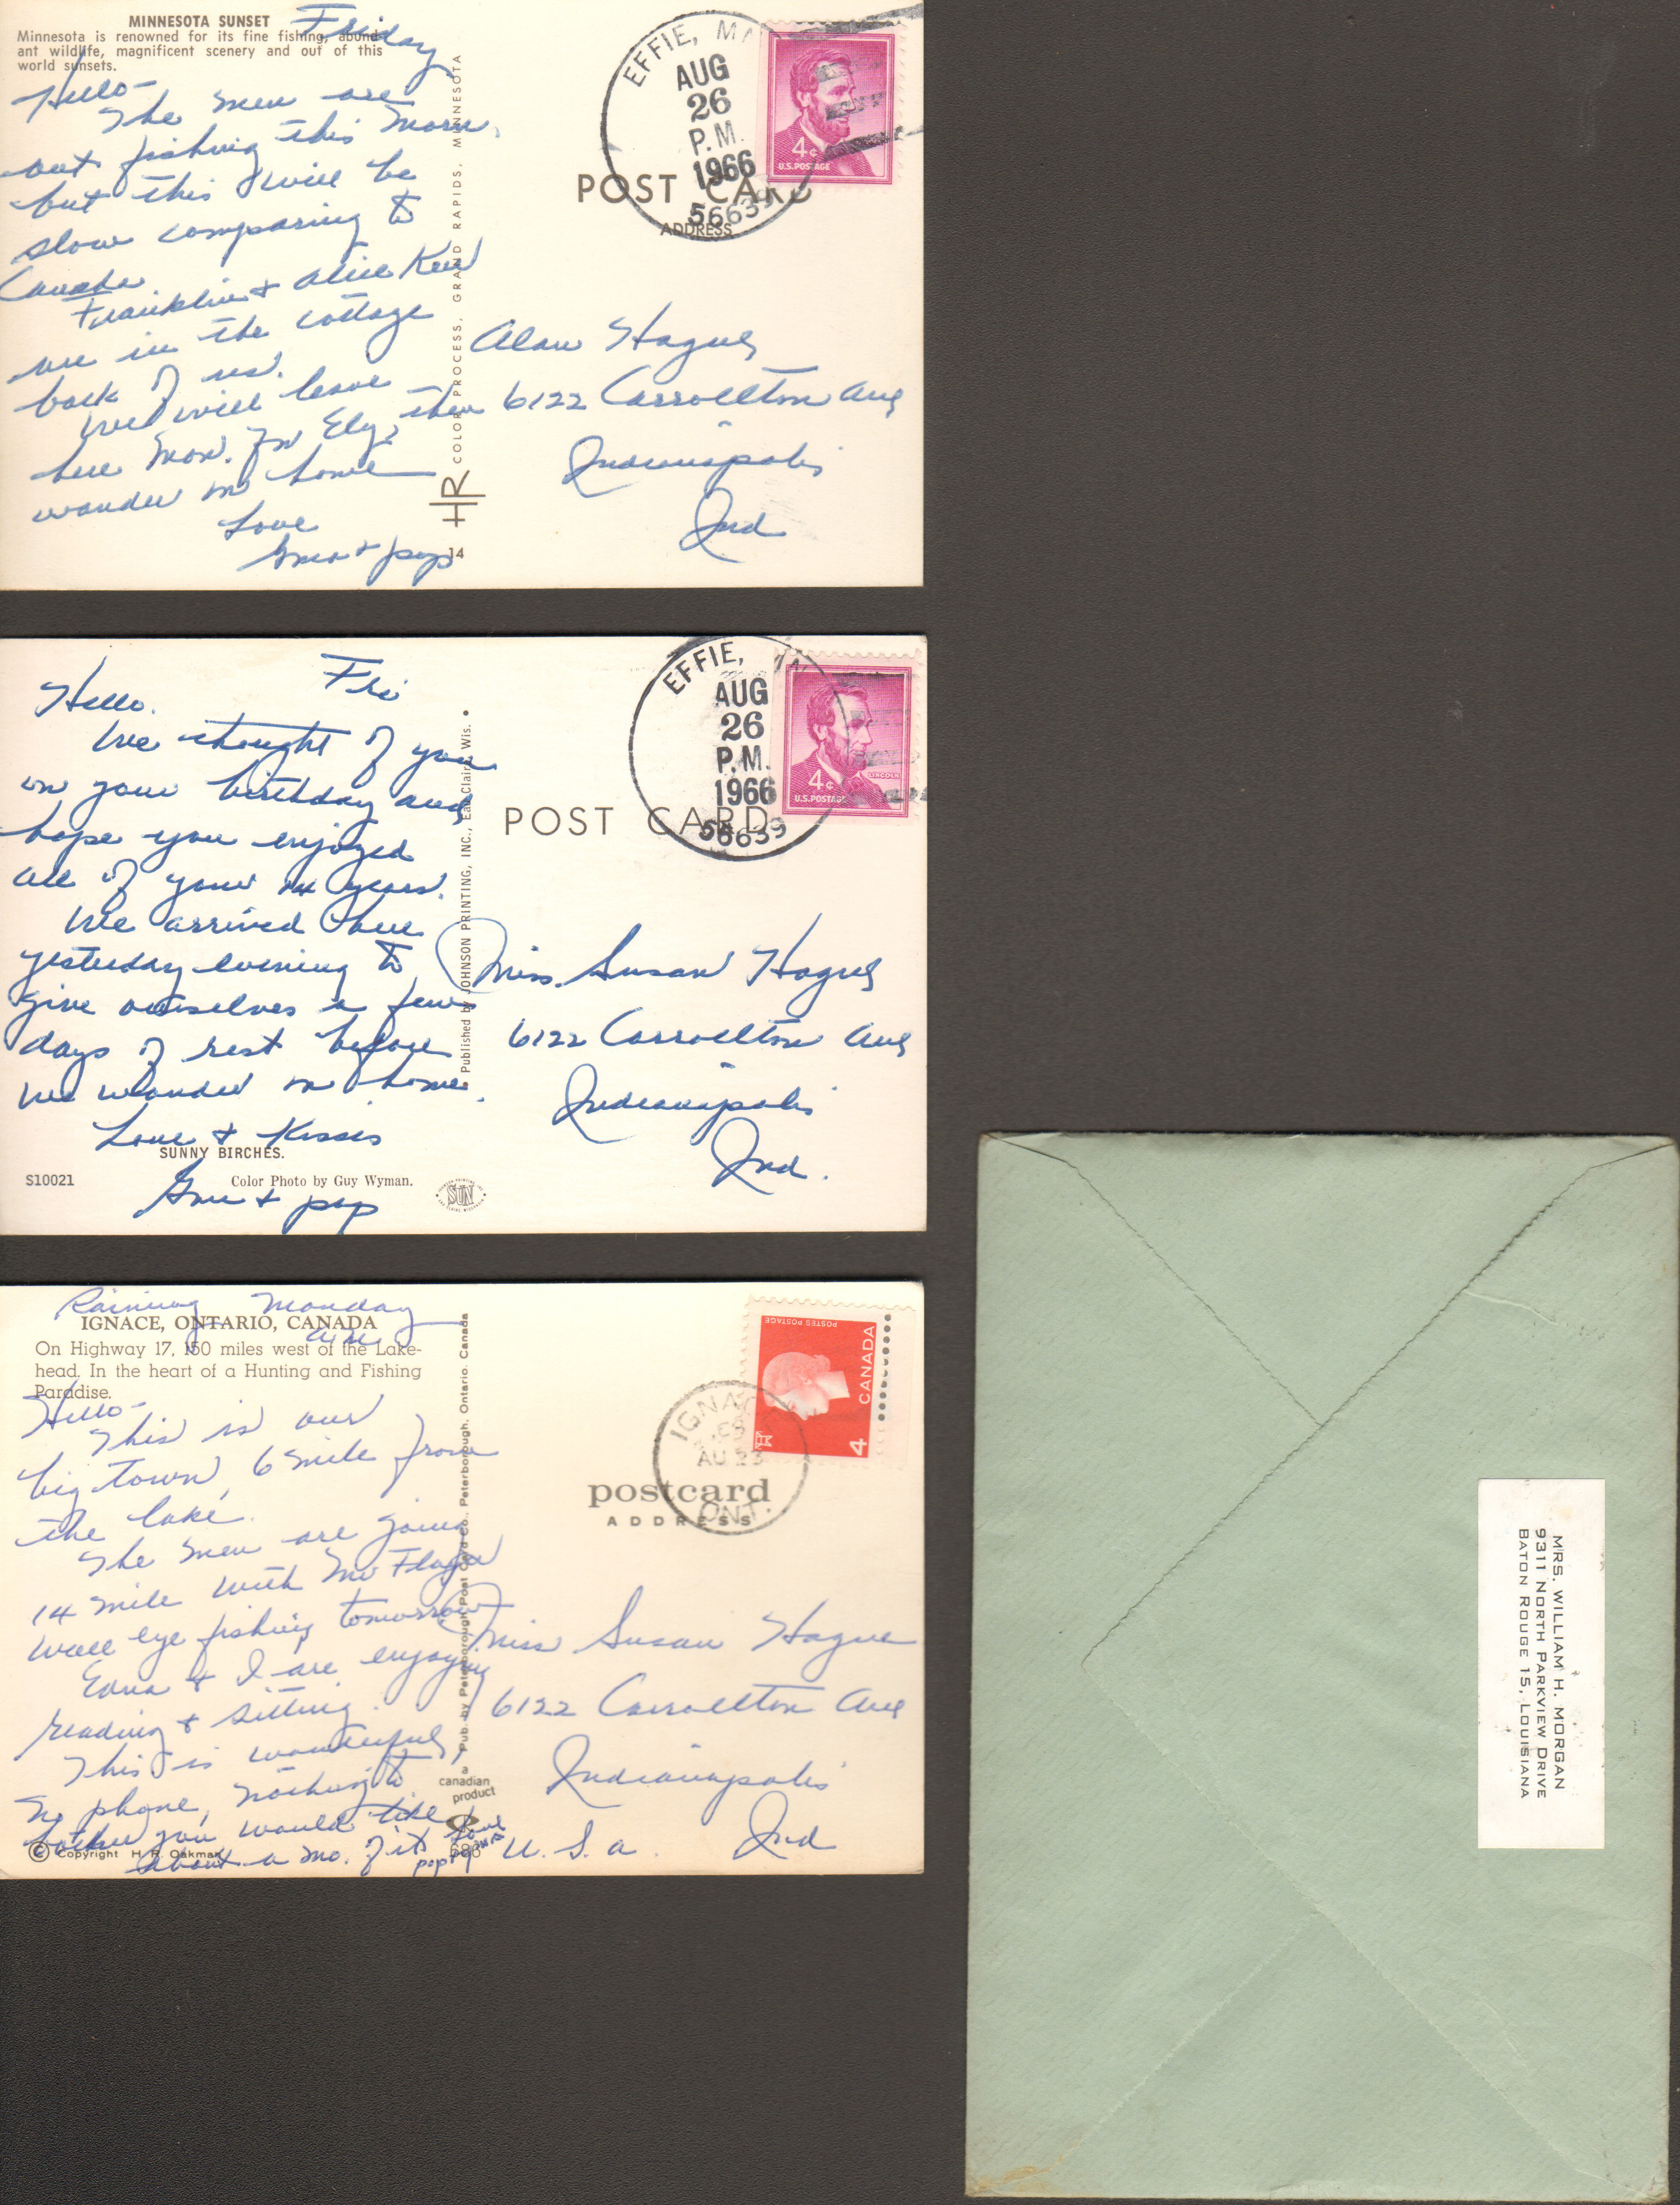 MINNESOTA SUNSET
Minnesota is renowned for its fine fishing, abund-
ant wildlife, magnificent scenery and out of this
world sunsets.
Friday
Hello-
The men are
out fishing this morn.
but this will be
slow comparing to
Canada.
Franklin & Alice
are in the cottage
back of us.
We will leave
here Mon. for Ely, then
wander on home
Love
& pop
COLOR PROCESS, GRAND RAPIDS, MINNESOTA
HR
14
EFFIE,
AUG
26
P.M.
1966
56639
4¢
U.S. POSTAGE
POST CARD
ADDRESS
Alan Hague
6122 Carrollton Ave
Indianapolis
Ind
Fri
Hello.
We thought of you
on your birthday and
hope you enjoyed
all of your 14 years.
We arrived here
yesterday evening to
give ourselves a few
days of rest before
we wander on home.
Love & Kisses
& pop
SUNNY BIRCHES.
S10021
Color Photo by Guy Wyman.
SUN
Published by JOHNSON PRINTING, INC., Eau Claire, Wis.
EFFIE,
AUG
26
P.M.
1966
56639
4¢
LINCOLN
U.S. POSTAGE
POST CARD
Miss. Susan Hague
6122 Carrollton Ave
Indianapolis
Ind.
Raining Monday
IGNACE, ONTARIO, CANADA
On Highway 17, 150 miles west of the Lake-
head. In the heart of a Hunting and Fishing
Paradise.
Hello-
This is our
big town, 6 mile from
the lake.
The men are going
14 mile with
wall eye fishing tomorrow
Edna & I are enjoying
reading & sitting.
This is wonderful,
no phone, nothing to
bother you would like
about a mo. of it Love
pop
© Copyright H. R. Oakman
Pub. by Peterborough Post Card Co., Peterborough, Ontario, Canada
a
canadian
product
686
POSTES POSTAGE
CANADA
4
IGNACE
AU 23
ONT.
postcard
ADDRESS
Miss Susan Hague
6122 Carrollton Ave
Indianapolis
Ind
U.S.A.
MRS. WILLIAM H. MORGAN
9311 NORTH PARKVIEW DRIVE
BATON ROUGE 15, LOUISIANA